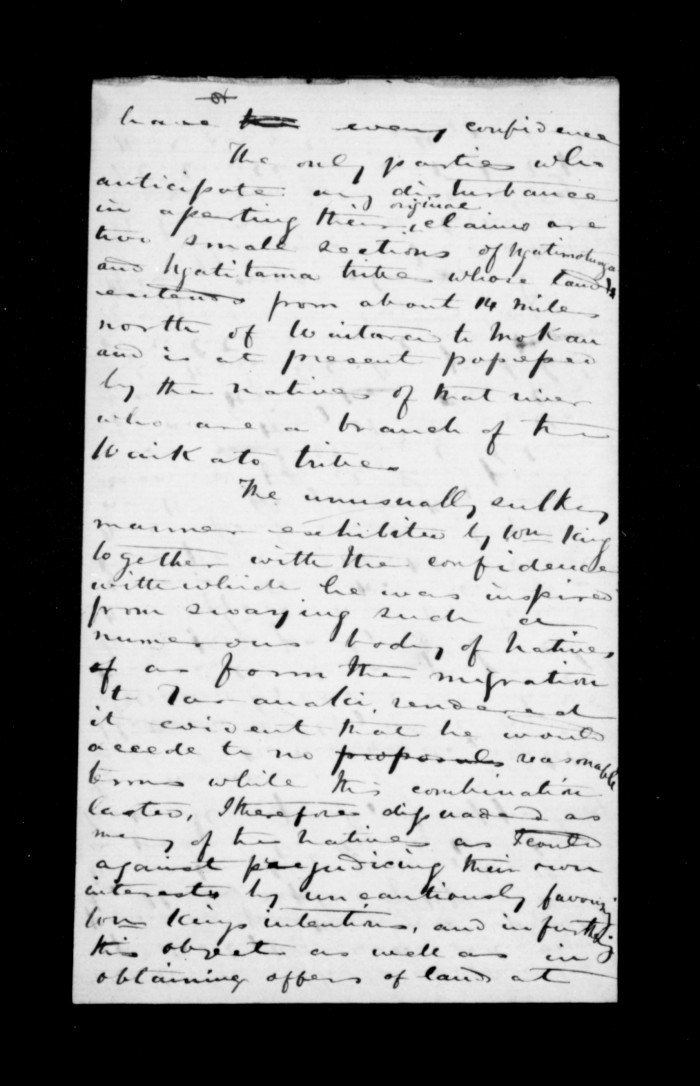 have every confidence
The only parties who
anticipate any disturbance
in asserting their original claims are
two small sections of Ngatimutunga
and Ngatitama tribes whose land
extends from about 14 miles
north of Waitara to Mokau
and is at present possessed
by the natives of that river
who are a branch of the
Waikato tribes
The unusually sulky
manner exhibited by Wm King
together with the confidence
with which he was inspired
from swaying such a
numerous body of Natives
as form the migration
to Taranaki, rendered
it evident that he would
accede to no proposals reasonable
terms while this combination
lasted, I therefore dissuaded as
many of the Natives as I could
against prejudicing their own
interests by uncautiously favouring
Wm Kings intentions, and in furthering
this object as well as in
obtaining offers of land at